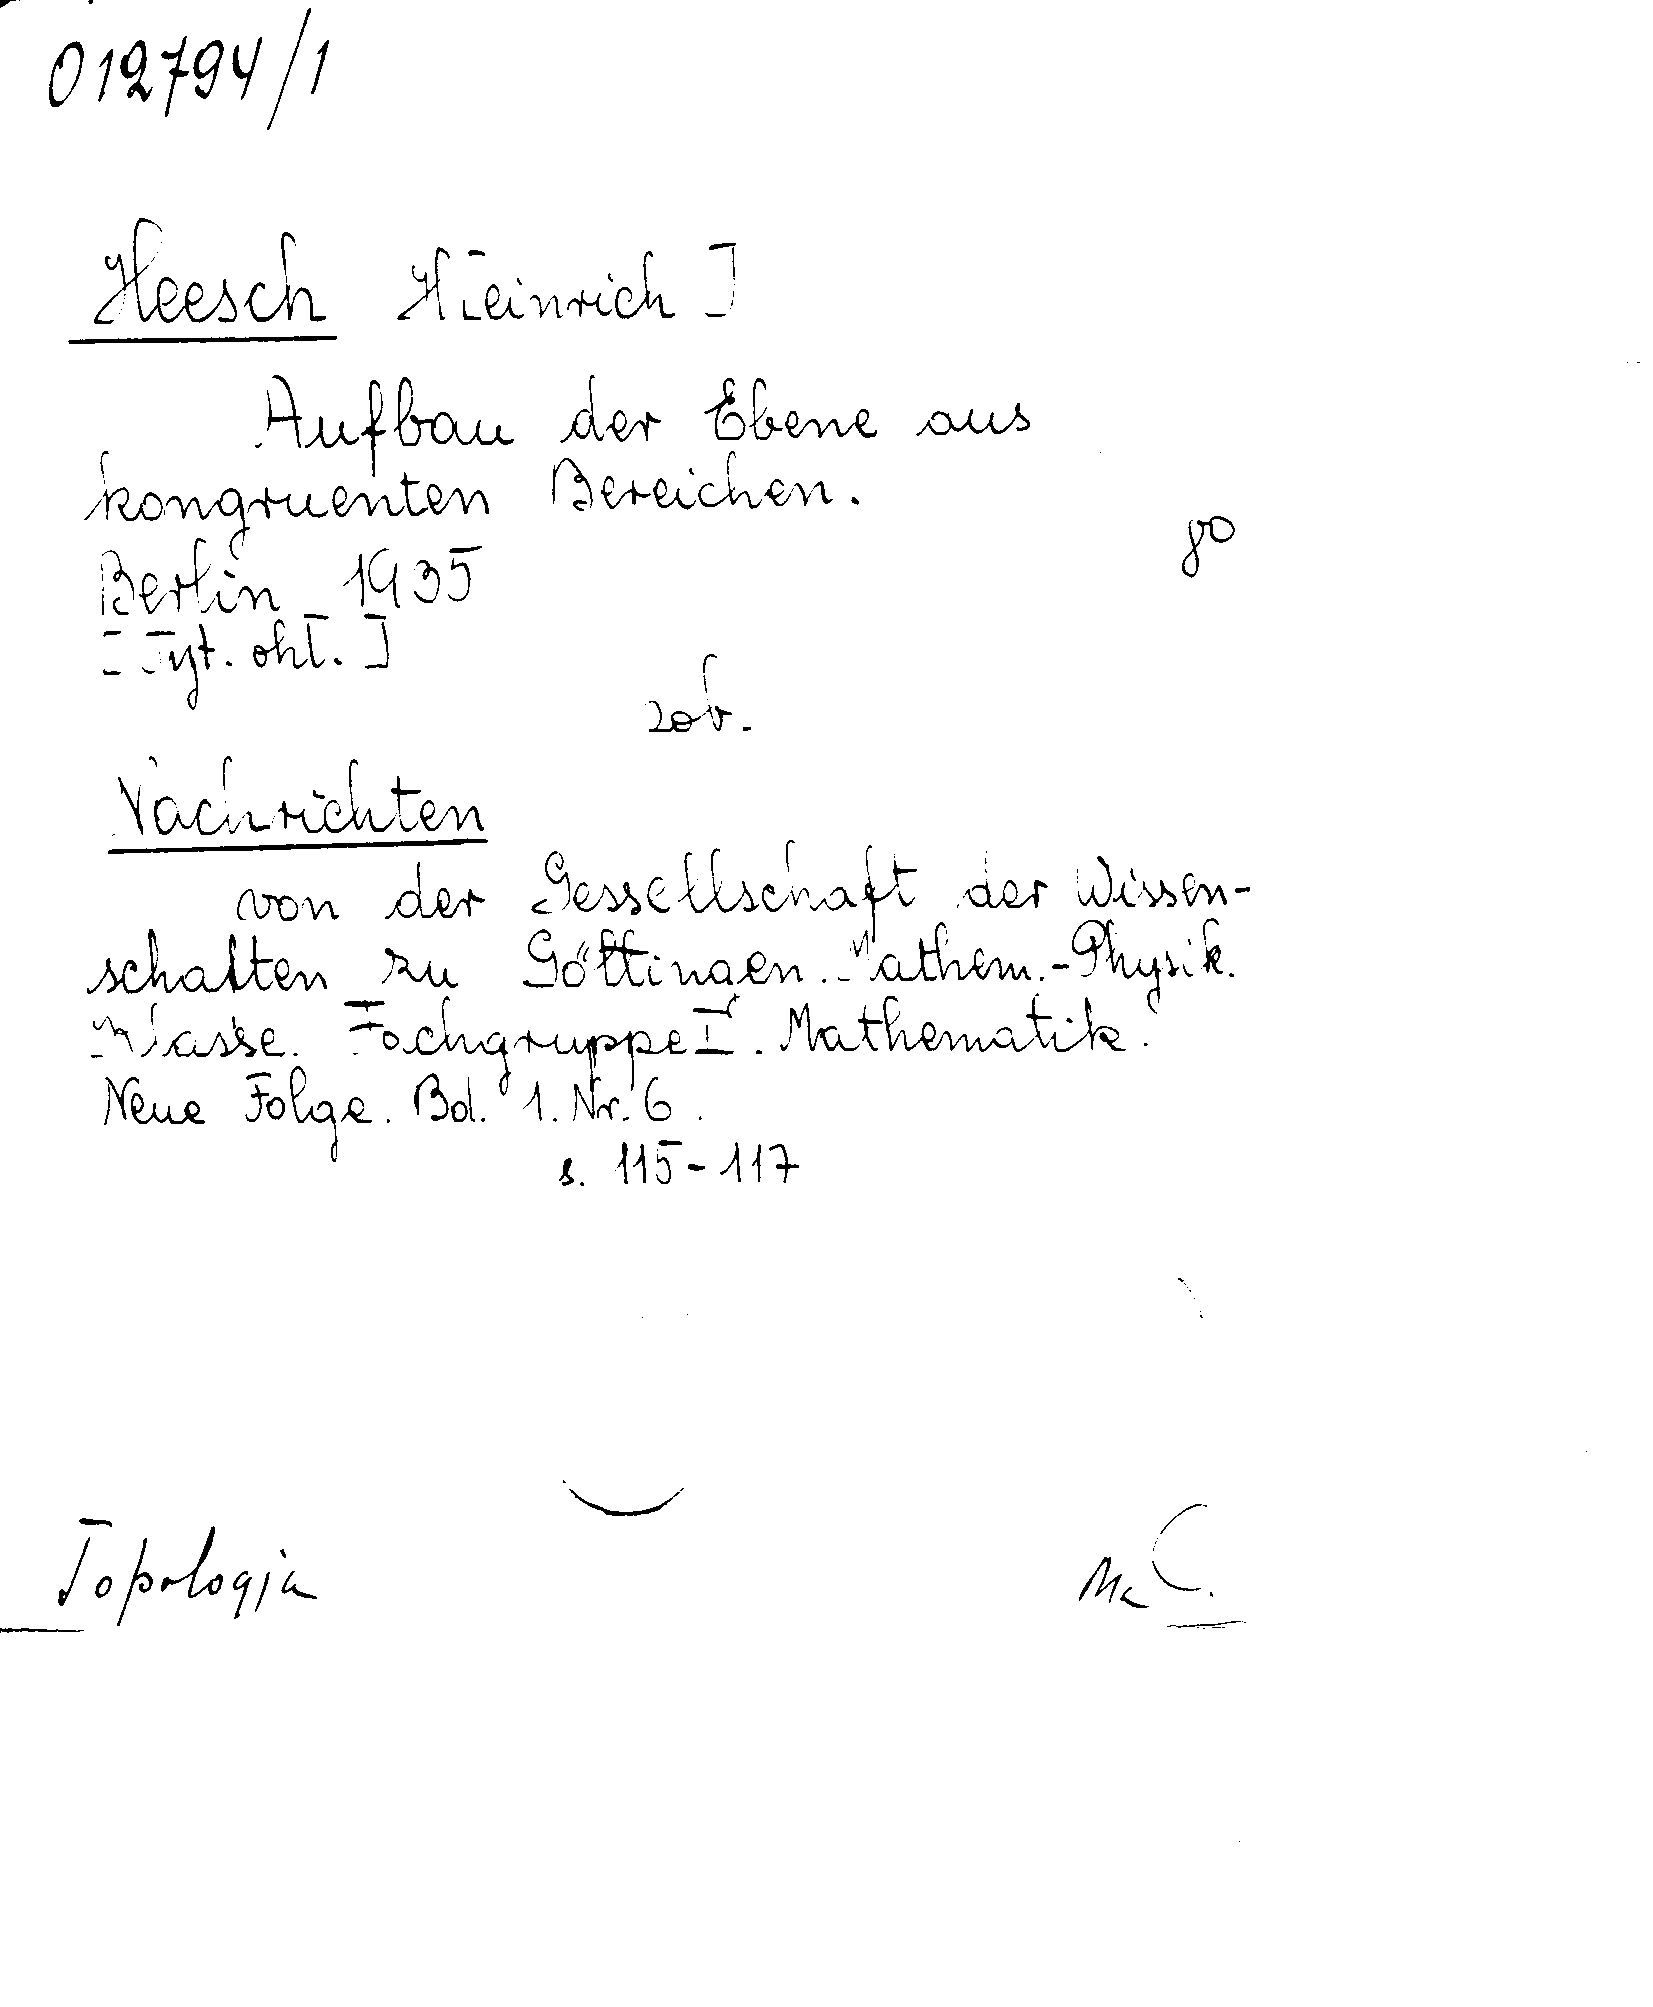 012794/1
Heesch H[einrich]
Aufbau der Ebene aus
kongruenten Bereichen.
8°
Berlin 1935
[Tyt. okł.]
zob.
Nachrichten
von der Gessellschaft der Wissen-
schaften zu Göttingen. Mathem.-Physik.
Klasse. Fachgruppe I. Mathematik.
Neue Folge. Bd. 1. Nr. 6.
s. 115-117
Topologja